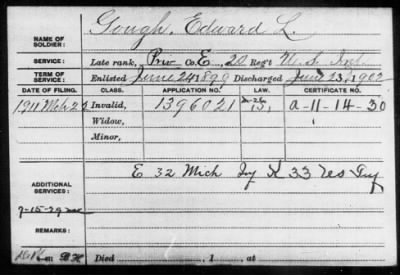 NAME OF SOLDIER: Gough, Edward L.
SERVICE: Late rank, Priv Co. E, 20 Reg't U.S. Inf.
TERM OF SERVICE: Enlisted June 24, 1899 Discharged June 23, 1902
DATE OF FILING. CLASS. APPLICATION NO. LAW. CERTIFICATE NO.
1911 Mch 22 Invalid, 1396021 a-11-14-30
Widow,
Minor,
E 32 Mich Inf K 33
ADDITIONAL SERVICES:
7-15-29
REMARKS:
Died , 1 , at